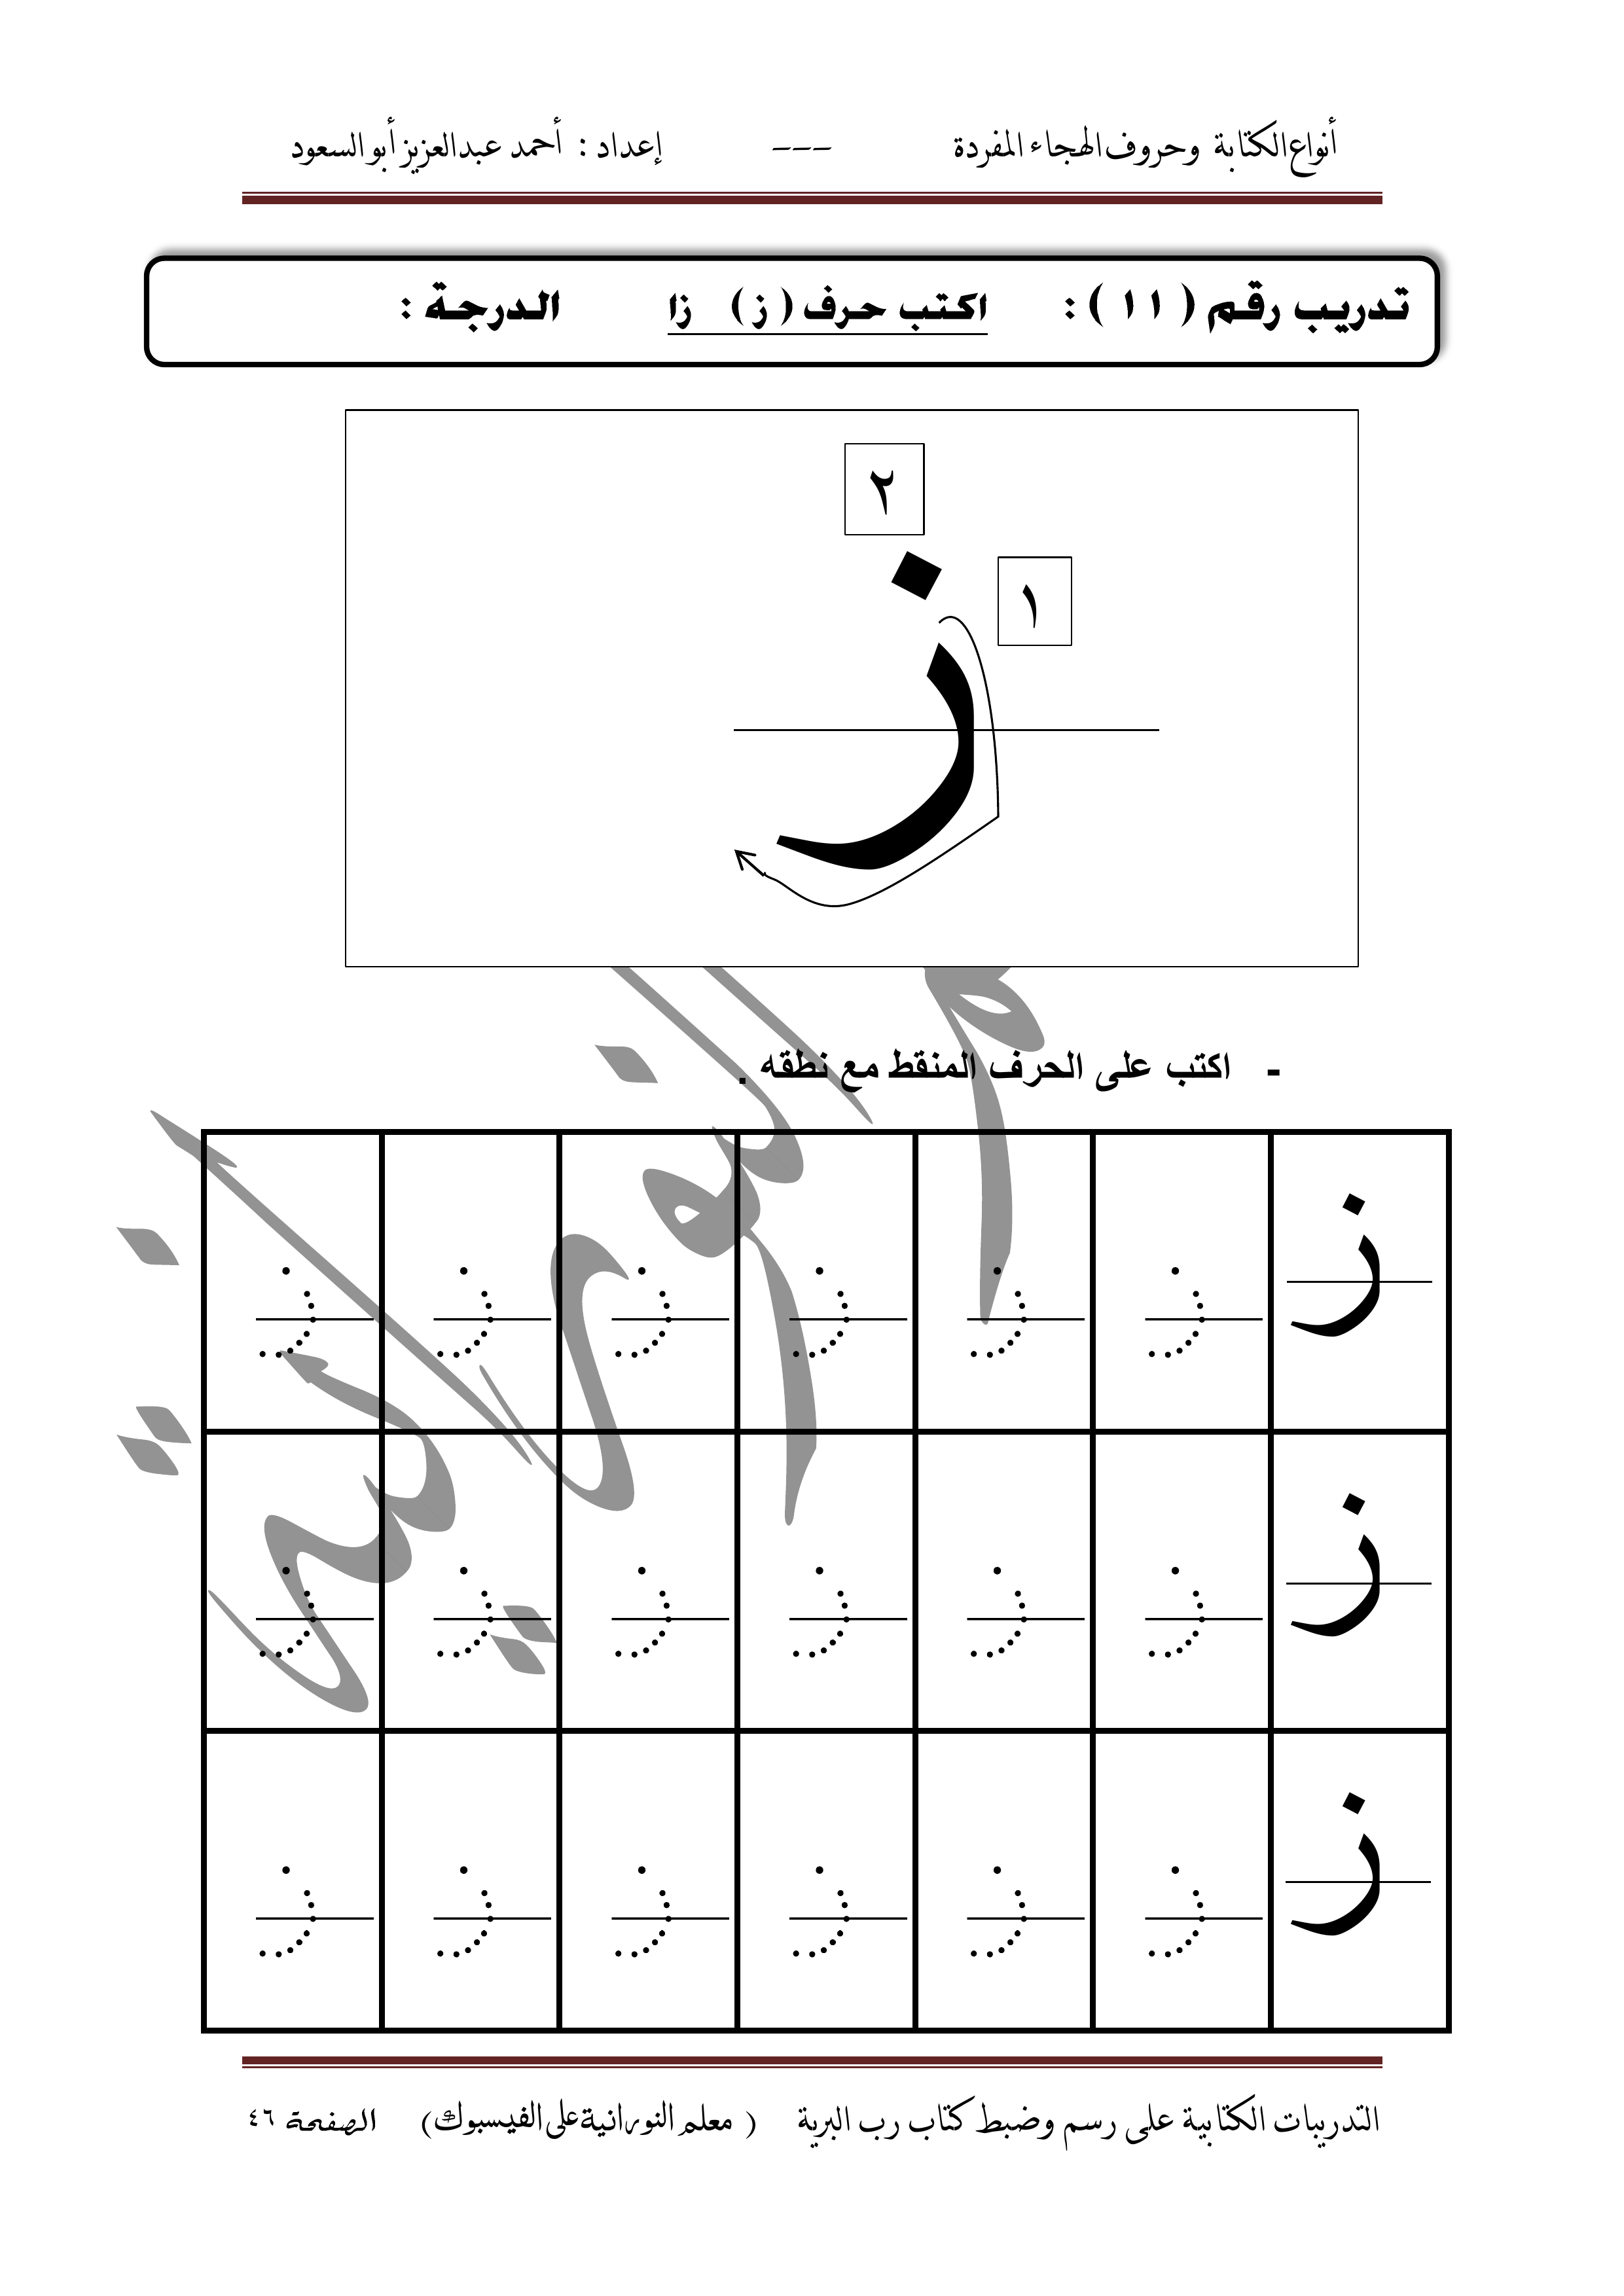 أنواع الكتابة وحروف الهجاء المفردة --- إعداد : أحمد عبدالعزيز أبو السعود
تدريب رقم ( ١١ ) : اكتب حرف ( ز ) زا الدرجة :
٢
١
ز
- اكتب على الحرف المنقط مع نطقه .
ز ز ز ز ز ز ز
ز ز ز ز ز ز ز
ز ز ز ز ز ز ز
التدريبات الكتابية على رسم وضبط كتاب رب البرية ( معلم النورانية على الفيسبوك ) الصفحة ٤٦